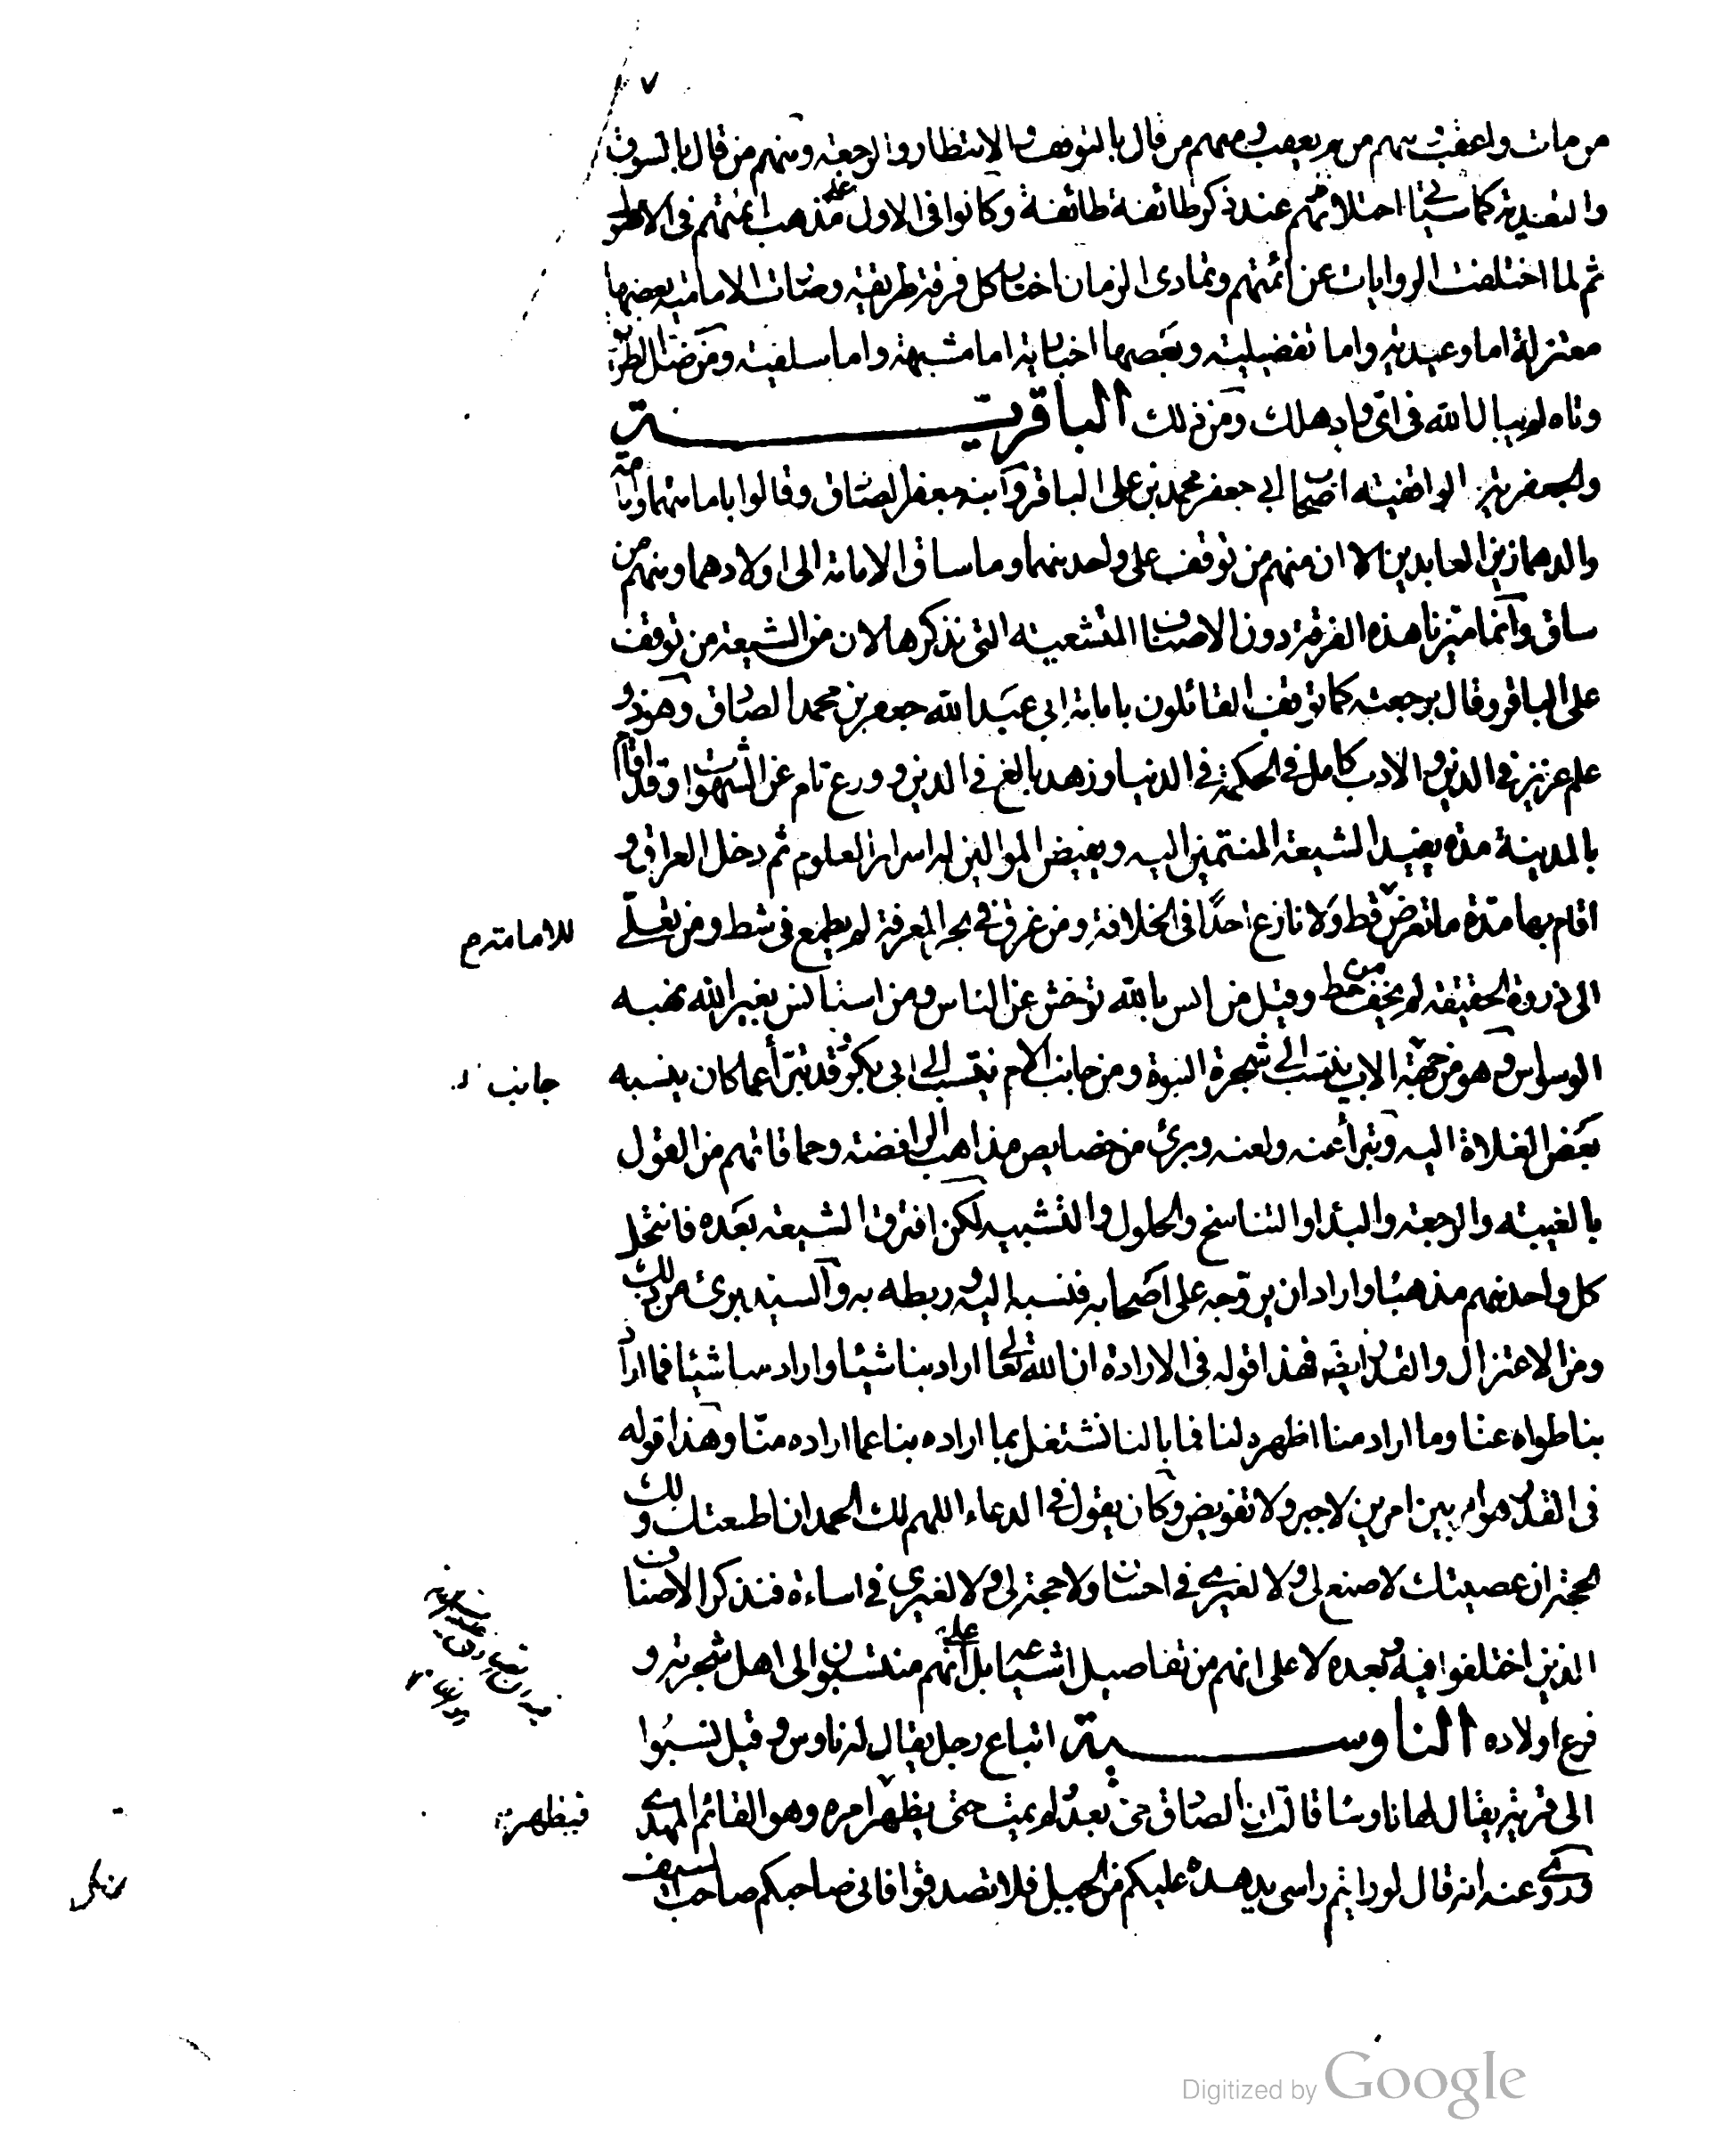 ٧
من مات واعقب ومنهم من لم يعقب ومنهم من قال بالتوقف والانتظار والرجعة ومنهم من قال بالسوق
والتعدية كما سيأتي اختلافاتهم عند ذكر طائفة طائفة وكانوا في الاول على مذهب ائمتهم في الاصول
ثم لما اختلفت الروايات عن ائمتهم وتمادى الزمان اختار كل فرقة طريقة وصارت الامامية بعضها
معتزلة اما وعيدية واما تفضيلية وبعضها اخبارية اما مشبهة واما سلفية ومن ضل الطريق
وتاه لم يبال الله في اي واد هلك ومن ذلك الباقرية
والجعفرية الواقفية اصحاب ابي جعفر محمد بن علي الباقر وابنه جعفر الصادق وقالوا بامامتهما وامامة
والدهما زين العابدين الا ان منهم من توقف على واحد منهما وما ساق الامامة الى اولادهما ومنهم من
ساق وانما ميزنا هذه الفرقة دون الاصناف المتشعبة التي نذكرها لان من الشيعة من توقف
على الباقر وقال برجعته كما توقف القائلون بامامة ابي عبد الله جعفر بن محمد الصادق وهو ذو
علم غزير في الدين والادب كامل في الحكمة في الدنيا وزهد بالغ في الدين وورع تام عن الشهوات وقد اقام
بالمدينة مدة يفيد الشيعة المنتمين اليه ويفيض الموالين له اسرار العلوم ثم دخل العراق و
اقام بها مدة ما تعرض قط ولا نازع احدًا في الخلافة ومن غرق في بحر المعرفة لم يطمع في شط ومن تعلى
للامامة
الى ذروة الحقيقة لم يخف من حط وقيل من انس بالله توحش عن الناس ومن استانس بغير الله نهبه
الوسواس وهو من جهة الاب ينتسب الى شجرة النبوة ومن جانب الام ينتسب الى ابي بكر وقد تبرأ عما كان ينسبه
جانب
بعض الغلاة اليه وتبرأ عنه ولعنه وبرئ من خصايص مذاهب الرافضة وحماقاتهم من القول
بالغيبة والرجعة والبدا والتناسخ والحلول والتشبيه لكن افترق الشيعة بعده فانتحل
كل واحد منهم مذهبا واراد ان يروجه على اصحابه فنسبه اليه وربطه به والسيد برئ من ذلك
ومن الاعتزال والقدر ايضا فهذا قوله في الارادة ان الله تعالى اراد بنا شيئا واراد منا شيئا فما اراد
بنا طواه عنا وما اراد منا اظهره لنا فما بالنا نشتغل بما اراده بنا عما اراده منّا وهذا قوله
في القدر هو امر بين امرين لا جبر ولا تفويض وكان يقول في الدعاء اللهم لك الحمد ان اطعتك ولك
الحجة ان عصيتك لا صنع لي ولا لغيري في احسان ولا حجة لي ولا لغيري في اساءة فنذكر الاصناف
الذين اختلفوا فيه وبعده لا على انهم من تفاصيل اشياعه بل على انهم منتسبون الى اهل شجرته و
فرع اولاده الناوسية اتباع رجل يقال له ناوس وقيل نسبوا
الى قرية يقال لها ناوسا قالت ان الصادق حي بعد لم يمت حتى يظهر امره وهو القائم المهدي
فيظهر
وروي عنه انه قال لو رايتم راسي يدهده عليكم من الجبل فلا تصدقوا فاني صاحبكم صاحب السيف
Digitized by Google